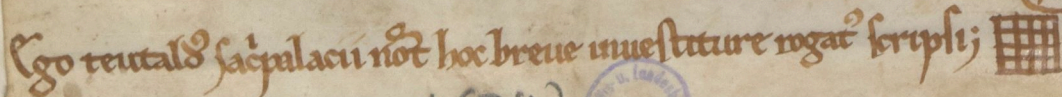 Ego teutald9 sac̃ palacii not̃ hoc breue inuestiture rogat9 scripsi;
u. Landesb